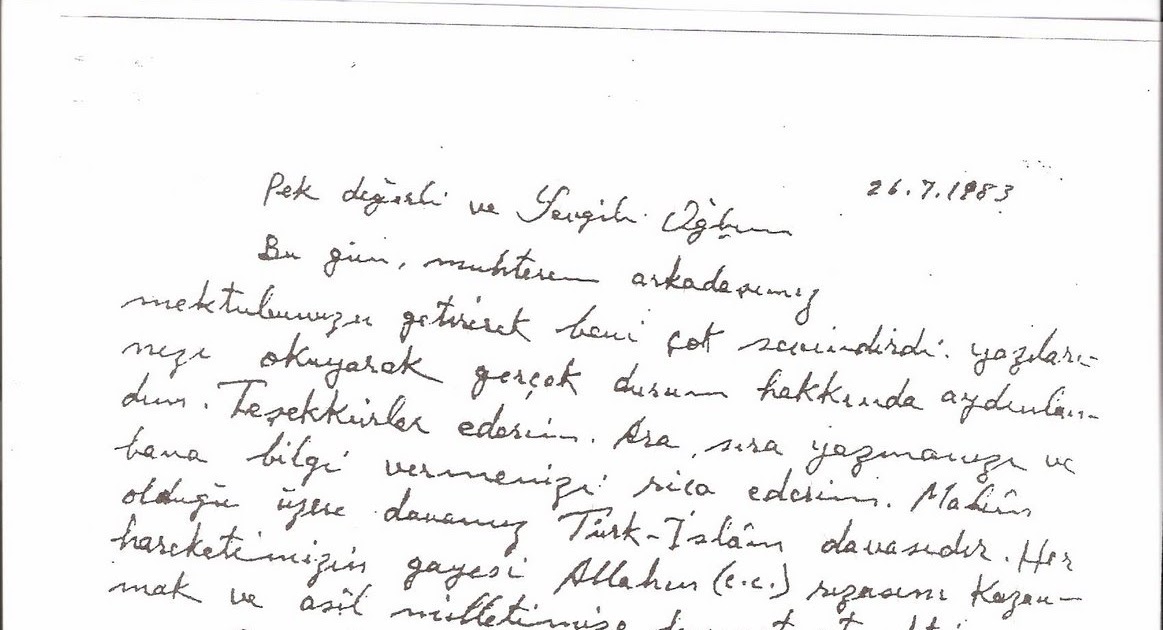 26.7.1983
Pek değerli ve Sevgili Oğlum
Bu gün, muhterem arkadaşımız
mektubunuzu getirerek beni çok sevindirdi. yazıları-
nızı okuyarak gerçek durum hakkında aydınlan-
dım. Teşekkürler ederim. Ara, sıra yazmanızı ve
bana bilgi vermenizi rica ederim. Malûm
olduğu üzere davamız Türk-İslâm davasıdır. Her
hareketimizin gayesi Allahın (c.c.) rızasını Kazan-
mak ve asil milletimize